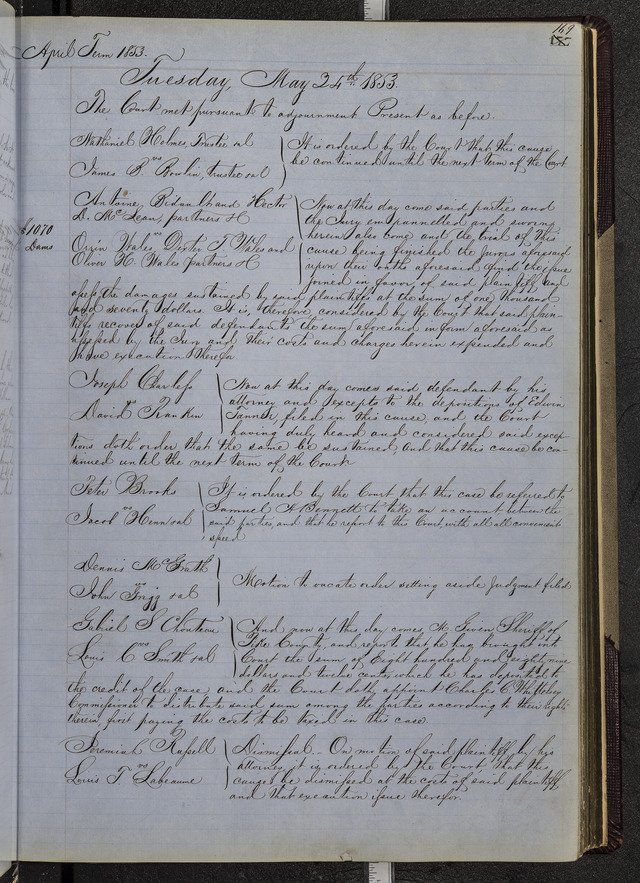 169
April Term 1853.
Tuesday, May 24th 1853.
The Court met pursuant to adjournment. Present as before.
Nathaniel Holmes, Trustee &al
vs
James B. Bowlin, trustee &al
It is ordered by the Court that this cause
be continued until the next term of the Court
Antoine Bidault and Hector
D. McLean, partners &c
vs
Orrin Wales, Dexter T. Wales and
Oliver H. Wales partners &c
$1070
Dams
Now at this day come said parties and
the Jury empannelled and sworn
herein also come and the trial of this
cause being finished the Jurors aforesaid
upon their oaths aforesaid find the issue
joined in favor of said plaintiffs and
assess the damages sustained by said plaintiffs at the sum of one thousand
and seventy dollars. It is, therefore considered by the Court that said plain-
tiffs recover of said defendants the sum aforesaid in form aforesaid as
assessed by the Jury and their costs and charges herein expended and
have execution therefor
Joseph Charless
vs
David Rankin
Now at this day comes said defendant by his
attorney and excepts to the depositions of Edwin
Tanner, filed in this cause, and the Court
having duly heard and considered said excep
tions doth order, that the same be sustained, and that this cause be con-
tinued until the next term of the Court
Peter Brooks
vs
Jacob Henn &al
It is ordered by the Court that this case be referred to
Samuel A Bennett to take an account between the
said parties, and that he report to this Court, with all all convenient
speed
Dennis McGrath
vs
John Grigg &al
Motion to vacate order setting aside Judgment filed
Gabriel S Chouteau
vs
Louis C Smith &al
And now at this day comes Mr Given, Sheriff of
Pike County, and reports that he has brought into
Court the sum of Eight hundred and eighty nine
dollars and twelve cents which he has deposited to
the credit of the case, and the Court doth appoint Charles C Whittlesey
Commissioner to distribute said sum among the parties according to their rights
therein first paying the costs to be taxed in this case
Jeremiah Russell
vs
Louis T. Labeaume
Dismissal - On motion of said plaintiff by his
attorney it is ordered by the Court that this
cause be dismissed at the costs of said plaintiff
and that execution issue therefor.